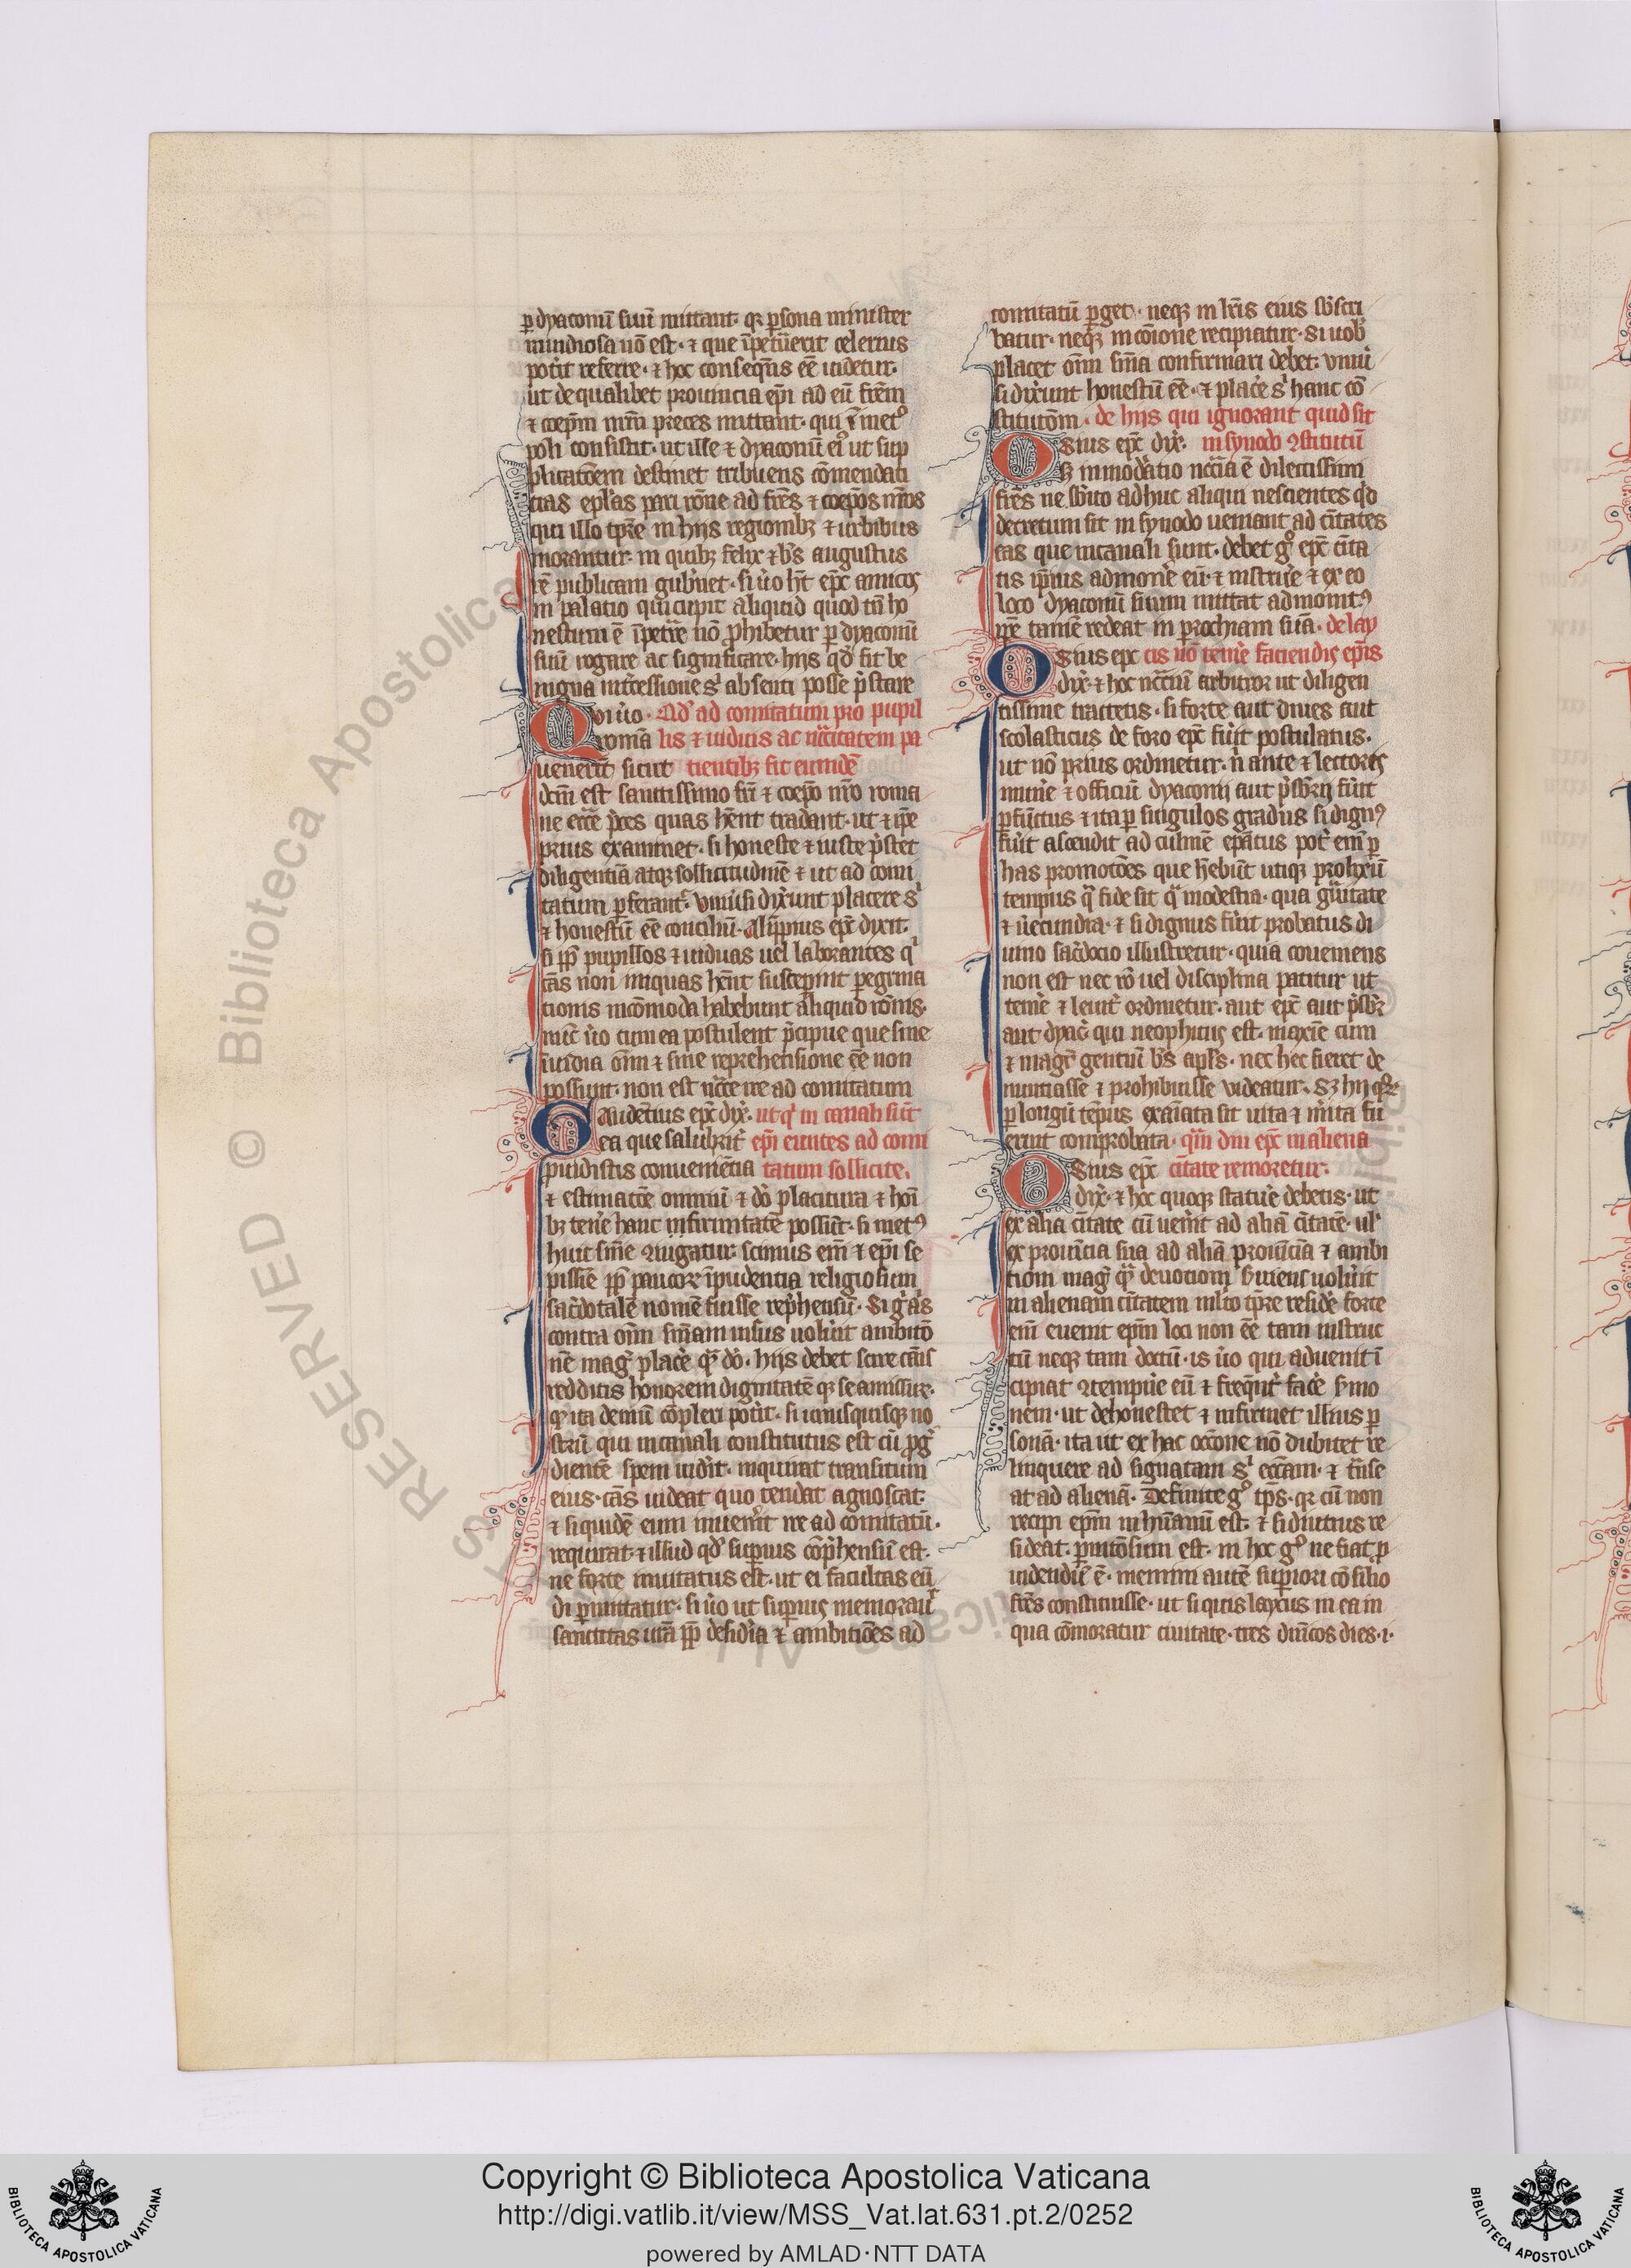 p dyaconū suū mittant. qꝛ psona minister
inuidiosa nō est. ⁊ que īpetūerit celerius
pot'it referre. ⁊ hoc consequēs eē uidetur.
ut de qualibet prouincia epī ad eū frēm
⁊ coepm nr̄m preces mittant. qui ī met᷒
poli consistit. ut ille ⁊ dyaconū ei᷒ ut sup
plicatōem destinet tribuens cōmendati
cias eplas pari rōne ad frēs ⁊ coepos nr̄os
qui illo tpr̄e in hijs regionibꝫ ⁊ urbibus
morantur. in quibꝫ felix ⁊ bs̄ augustus
rē publicam gub'net. si u'o hn̄t epc̄ amicos
in palatio qui cupit aliquid quod tn̄ ho
nestum ē īpetr̄e nō ꝓhibetur p dyaconū
suū rogare ac significare. hijs qd' sit be
nigna int'cessione sᶦ absenti posse p'stare
Qui u'o. Qd' ad comitatum pro pupil
romā lis ⁊ uiduis ac nccitatem pa
uenerīt sicut tientibꝫ sit eundē
dc̄m est sanctissimo frī ⁊ coepo nr̄o roma
ne eccē p'ces quas hn̄t tradant. ut ⁊ ip̄e
prius examinet. si honeste ⁊ iuste p'stet
diligentiā atqꝫ sollicitudinē ⁊ ut ad comi
tatum pferant'. Uniu'si dixerunt placere sᶦ
⁊ honestū eē conciliū. Alippius epc̄ dixit.
si ꝓp̄ pupillos ⁊ uiduas uel laborantes qᶦ
cās non iniquas hn̄t suscepint pegrina
tionis incōmoda habebunt aliquid rōnis.
nūc u'o cum ea postulent p'cipue que sine
īuidia om̄ ⁊ sine reprehensione eē non
possunt. non est nc̄ce ire ad comitatum
Gaudētius epc̄ dix'. ut qᶦ in canali sūt
ea que salubrit' epī euntes ad comi
puidistis conueniētia tatum sollicite.
⁊ estimatōe omniū ⁊ dō placitura ⁊ hoī
bꝫ ten'e hanc infirmitatē possūt. si met᷒
huic sn̄ie ꝯiūgatur. scimus em̄ ⁊ epī se
pissie ꝓp̄ paucoꝝ īpudentia religiosum
sac'dotalē nomē fuisse rep'hensū. Si gᶦ aᶦs
contra om̄ sn̄iam insius uolu'it ambitō
nē mag' place' qᵃ dō. hijs debet scire cāis
redditis honorem dignitatē qꝫ se amissur.
qꝫ ita demū cōpleri pot'it. si unusquisqꝫ no
strū qui in canali constitutus est cū ꝓg'
dientē epm uid'it. inquirat transitum
eius. cās uideat quo tendat agnoscat.
⁊ si quidē eum inuen'it ire ad comitatū.
requirat. ⁊ illud qd' superius cōp'hensū est.
ne forte inuitatus est. ut ei facultas eū
di pmittatur. si u'o ut supius memorauᶦ
sanctitas ur̄a ꝓp̄ desid'ia ⁊ ambitiōes ad
comitatū pget. neqꝫ in lr̄is eius sb'scri
batur. neqꝫ in cōione recipiatur. Si uobᶦ
placet om̄ sn̄ia confirmari debet. Uniu'
si dix'unt honestū eē. ⁊ place' sᶦ hanc cō
stitutōm. de hijs qui ignorant quid sit
Osius epc̄ dix'. in synodo ꝯstitutū
Sꝫ in mod'atio ncc̄ia ē dilectissimi
frēs ne sb'ito adhuc aliqui nescientes qd'
decretum sit in synodo ueniant ad cītates
eas que in canali sunt. debet g᷒ epc̄ cīta
tis ipīus admone' eū. ⁊ instrue' ⁊ ex eo
loco dyaconū suum mittat admonit᷒
ip̄e tamē redeat in prochiam suā. de lay
Osius epc cis nō tem'e faciendis ep̄is
dix'. ⁊ hoc ncc̄iū arbitror ut diligen
tissime tractetis. si forte aut diues aut
scolasticus de foro epc̄ fu'it postulatus.
ut nō prius ordinetur. n' ante ⁊ lectoris
mune' ⁊ officiū dyaconij aut p'sb'rij fu'it
pfūctus ⁊ ita p singulos gradus si dign᷒
fu'it ascendit ad culmē epātus pot' em̄ p
has promotōes que hēbūt utiqꝫ prolixū
tempus qᵃ fide sit qᵃ modestia. qua g'uitate
⁊ u'ecundia. ⁊ si dignus fu'it probatus di
uino sac'docio illustretur. quia coueniens
non est nec rō uel disciplina patitur ut
tem'e ⁊ leuit' ordinetur. aut epc̄ aut p'sb'r
aut dyac' qui neophitus est. maxīe cum
⁊ mag'r gentiū bs̄ aplᶦs. nec hec fieret de
nuntiasse ⁊ prohibuisse uideatur. Sꝫ hij qꝝ
p longū tēpus exāiata sit uita ⁊ m'ita fu
erint comprobata. qm̄ diu epc̄ in aliena
Osius epc̄ cītate remoretur.
dix'. ⁊ hoc quoqꝫ statue' debetis. ut
ex alia cītate cū uen'it ad aliā cītatē. ulᶦ
ex prouīcia sua ad aliā prouīciā ⁊ ambi
tiom mag' qᵃ deuotiom s'uiens uolu'it
in alienam cītatem ml'to tpr̄e reside' forte
em̄ euenit epm̄ loci non eē tam instruc
tū neqꝫ tam doctū. is u'o qui aduenit ī
cipiat ꝯtempne' eū ⁊ freqn̄t' face' s'mo
nem. ut dehonestet ⁊ infirmet illius p
sonā. ita ut ex hac occōne nō dubitet re
linquere ad signatam sᶦ eccam. ⁊ tn̄se
at ad alienā. Definite g᷒ tps. qꝛ cū non
recipi epm̄ inhūanū est. ⁊ si diutius re
sideat. pnitōsum est. in hoc g᷒ ne fiat p
uidendū ē. memini autē supiori cōsilio
frēs constituisse. ut si quis laycus in ea in
qua cōmoratur ciuitate. tres dn̄icos dies. i.
RESERVED © Biblioteca Apostolica
Copyright © Biblioteca Apostolica Vaticana
http://digi.vatlib.it/view/MSS_Vat.lat.631.pt.2/0252
powered by AMLAD·NTT DATA
BIBLIOTECA APOSTOLICA VATICANA
BIBLIOTECA APOSTOLICA VATICANA